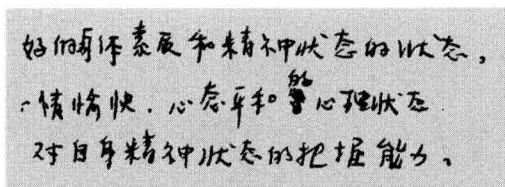 好的身体素质和精神状态的状态，
心情愉快．心态平和的心理状态
对自身精神状态的把握能力、